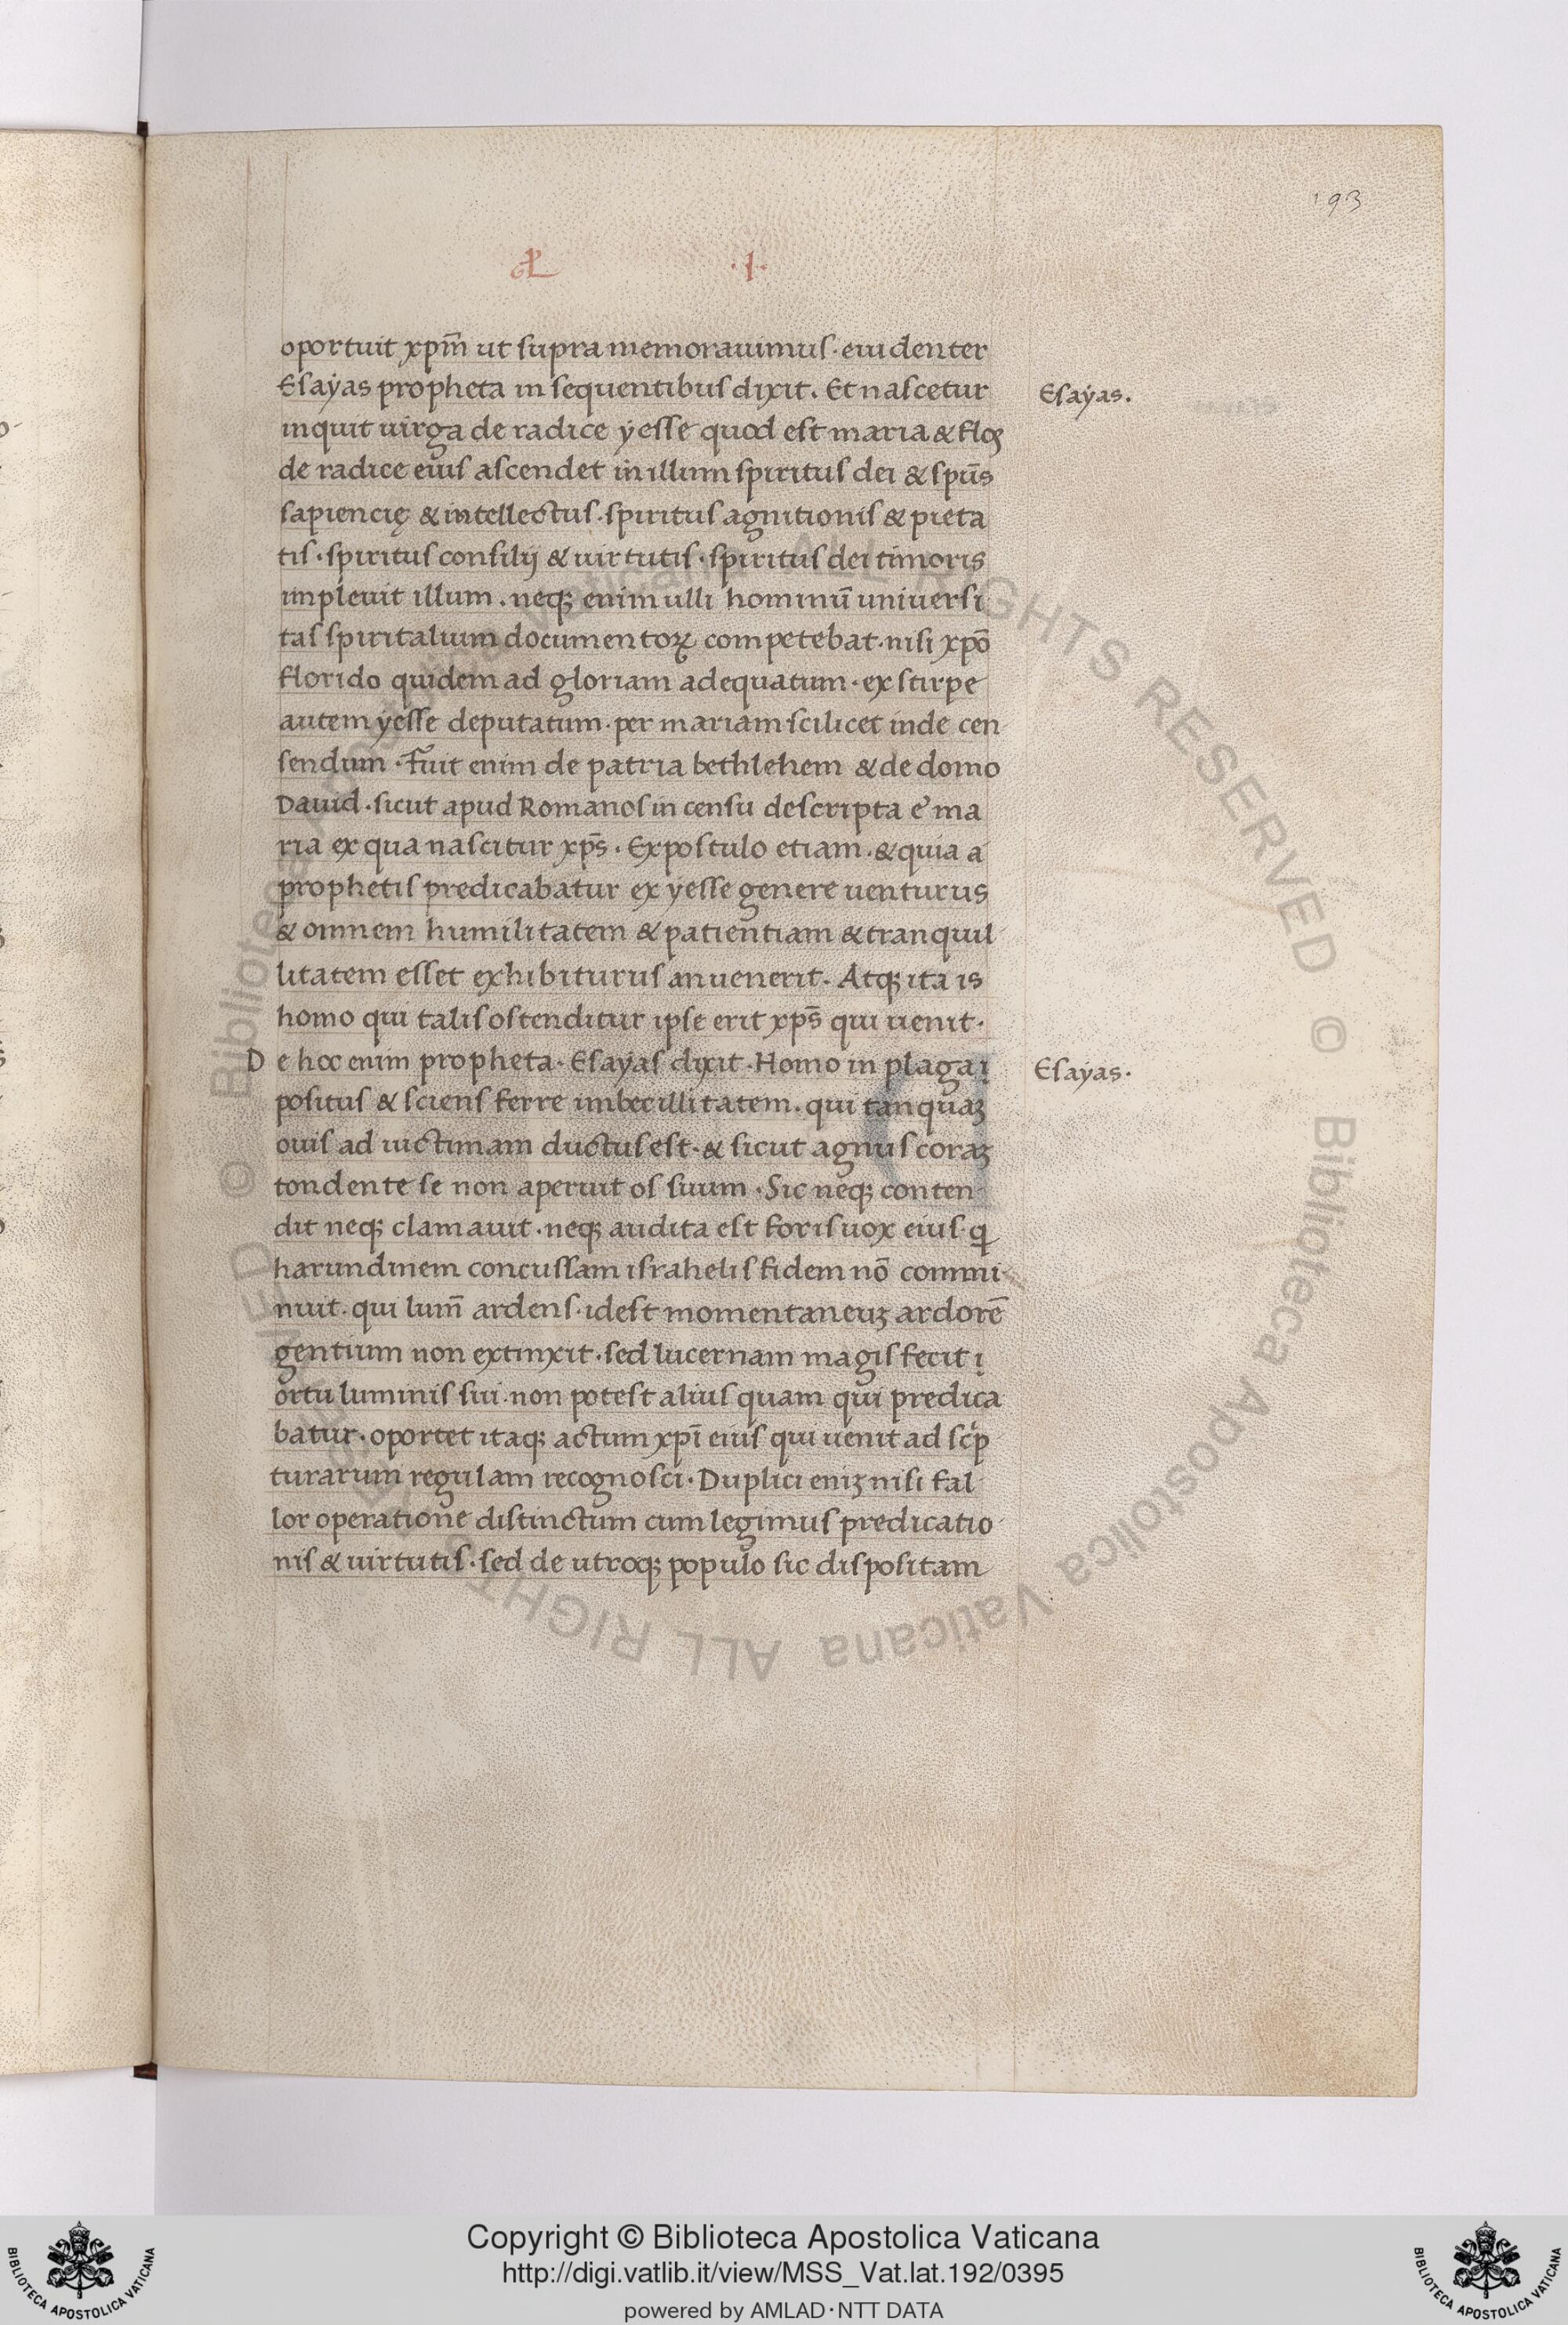 193
·I·
oportuit xp̄m ut supra memorauimus· euidenter
Esaÿas propheta in sequentibus dixit. Et nascetur
Esaÿas.
inquit uirga de radice yesse quod est maria & flos
de radice eius ascendet in illum spiritus dei & sp̄us
sapiencię & intellectus· spiritus agnitionis & pieta
tis· spiritus consilij & uirtutis· spiritus dei timoris
impleuit illum. neqꝫ enim ulli hominū uniuersi
tas spiritalium documentoꝝ competebat· nisi xpō
florido quidem ad gloriam adequatum· ex stirpe
autem yesse deputatum· per mariam scilicet inde cen
sendum· Fuit enim de patria bethlehem & de domo
Dauid· sicut apud Romanos in censu descripta ē ma
ria ex qua nascitur xp̄s· Expostulo etiam· & quia a
prophetis predicabatur ex yesse genere uenturus
& omnem humilitatem & patientiam & tranquil
litatem esset exhibiturus an uenerit. Atqꝫ ita is
homo qui talis ostenditur ipse erit xp̄s qui uenit·
De hoc enim propheta· Esayas dixit· Homo in plaga ī
Esayas·
positus & sciens ferre imbecillitatem· qui tanquaꝫ
ouis ad uictimam ductus est· & sicut agnus coraꝫ
tondente se non aperuit os suum· Sic neqꝫ conten
dit neqꝫ clamauit· neqꝫ audita est foris uox eius· qi
harundinem concussam israhelis fidem nō commi
nuit· qui lum̄ ardens· idest momentaneuꝫ ardorē
gentium non extinxit· sed lucernam magis fecit ı
ortu luminis sui· non potest alius quam qui predica
batur· oportet itaqꝫ actum xpī eius qui uenit ad scⁱp
turarum regulam recognosci· Duplici eniꝫ nisi fal
lor operatione distinctum cum legimus predicatio
nis & uirtutis· sed de utroqꝫ populo sic dispositam
© Biblioteca Apostolica Vaticana ALL RIGHTS RESERVED © Biblioteca Apostolica Vaticana ALL RIGHT
Copyright © Biblioteca Apostolica Vaticana
http://digi.vatlib.it/view/MSS_Vat.lat.192/0395
powered by AMLAD·NTT DATA
BIBLIOTECA APOSTOLICA VATICANA
BIBLIOTECA APOSTOLICA VATICANA